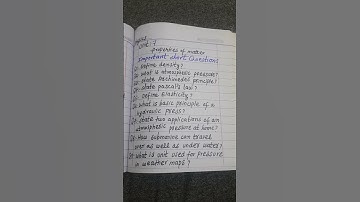 Unit 7
Properties of matter
Important short Questions
Define density?
what is atmospheric pressure?
state Archimedes principle?
state pascal's law?
Define Elasticity?
what is basic principle of a
hydraulic press?
state two applications of an
atmospheric pressure at home?
How submarine can travel
over as well as under water?
what is unit used for pressure
in weather maps?